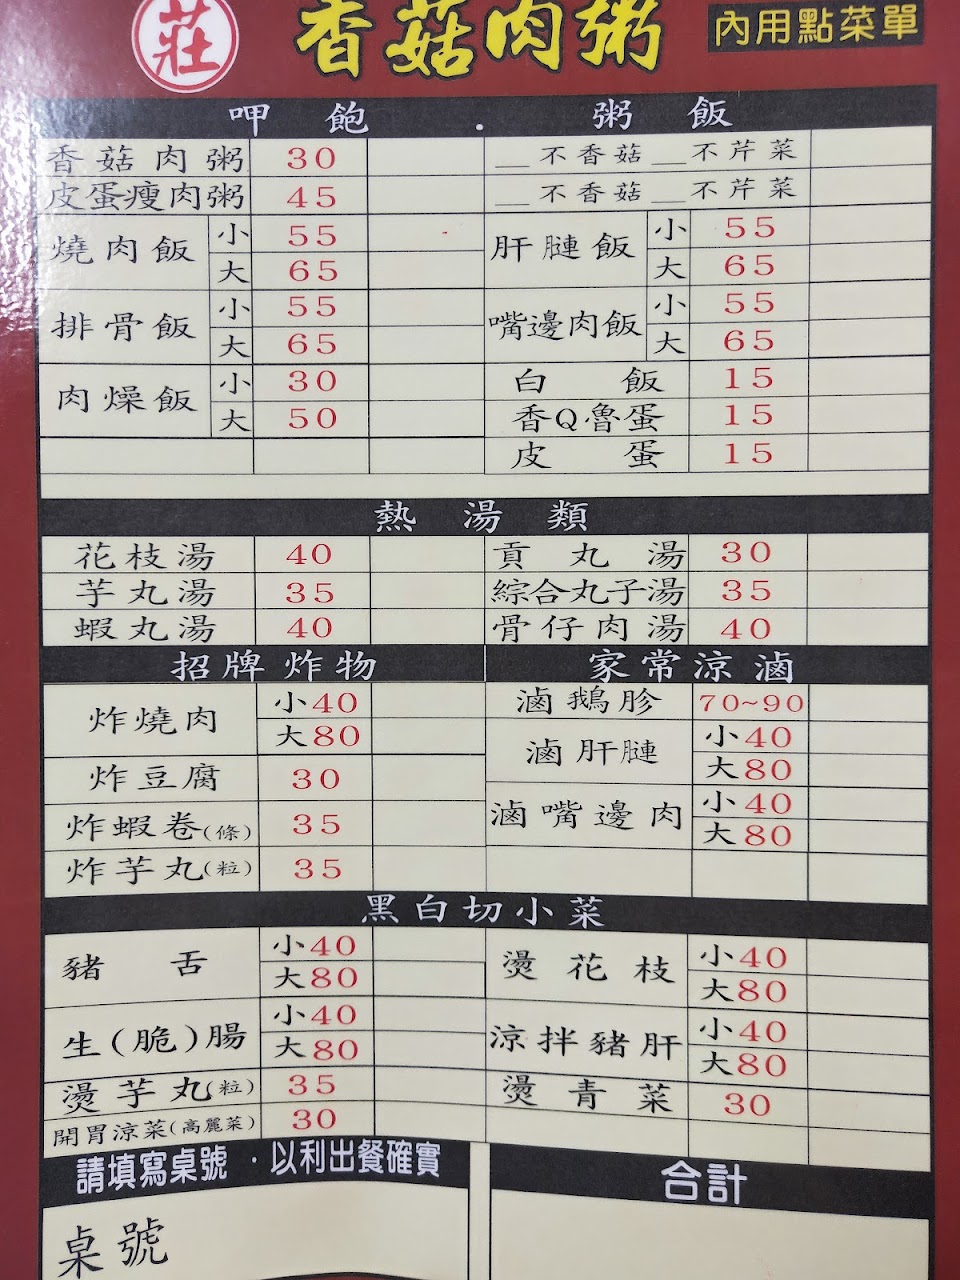 莊 香菇肉粥 內用點菜單
呷飽．粥飯
香菇肉粥 30 __不香菇__不芹菜
皮蛋瘦肉粥 45 __不香菇__不芹菜
燒肉飯 小 55 大 65
肝膴飯 小 55 大 65
排骨飯 小 55 大 65
嘴邊肉飯 小 55 大 65
肉燥飯 小 30 大 50
白飯 15
香Q魯蛋 15
皮蛋 15
熱湯類
花枝湯 40 貢丸湯 30
芋丸湯 35 綜合丸子湯 35
蝦丸湯 40 骨仔肉湯 40
招牌炸物
炸燒肉 小40 大80
炸豆腐 30
炸蝦卷(條) 35
炸芋丸(粒) 35
家常涼滷
滷鵝胗 70~90
滷肝膴 小40 大80
滷嘴邊肉 小40 大80
黑白切小菜
豬舌 小40 大80
燙花枝 小40 大80
生(脆)腸 小40 大80
涼拌豬肝 小40 大80
燙芋丸(粒) 35
燙青菜 30
開胃涼菜(高麗菜) 30
請填寫桌號．以利出餐確實
合計
桌號